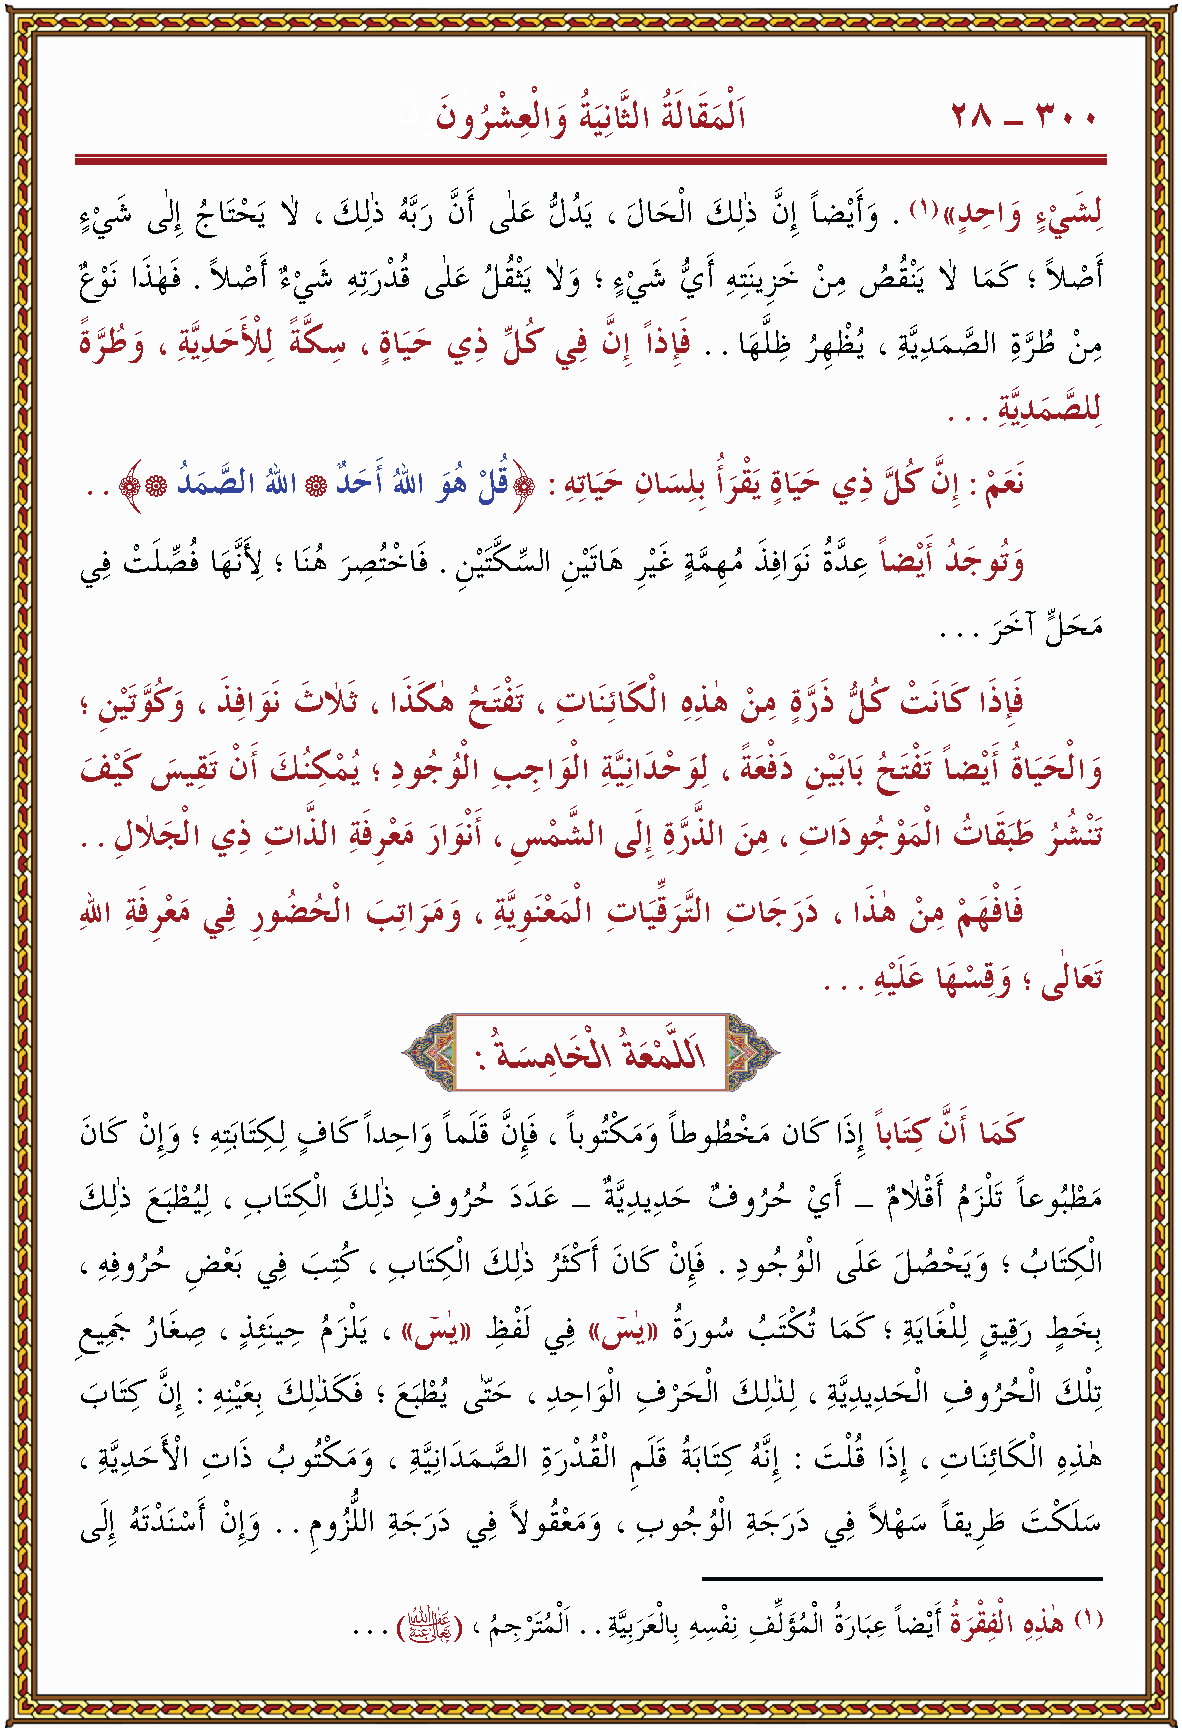 ٣٠٠ ــ ٢٨ اَلْمَقَالَةُ الثَّانِيَةُ وَالْعِشْرُونَ
لِشَيْءٍ وَاحِدٍ»(١) . وَأَيْضاً إِنَّ ذٰلِكَ الْحَالَ ، يَدُلُّ عَلٰى أَنَّ رَبَّهُ ذٰلِكَ ، لاٰ يَحْتَاجُ إِلٰى شَيْءٍ
أَصْلاً ؛ كَمَا لاٰ يَنْقُصُ مِنْ خَزِينَتِهِ أَيُّ شَيْءٍ ؛ وَلاٰ يَثْقُلُ عَلٰى قُدْرَتِهِ شَيْءٌ أَصْلاً . فَهٰذَا نَوْعٌ
مِنْ طُرَّةِ الصَّمَدِيَّةِ ، يُظْهِرُ ظِلَّهَا . . فَإِذاً إِنَّ فِي كُلِّ ذِي حَيَاةٍ ، سِكَّةً لِلْأَحَدِيَّةِ ، وَطُرَّةً
لِلصَّمَدِيَّةِ . . .
نَعَمْ : إِنَّ كُلَّ ذِي حَيَاةٍ يَقْرَأُ بِلِسَانِ حَيَاتِهِ : ﴿قُلْ هُوَ اللهُ أَحَدٌ ۞ اللهُ الصَّمَدُ ۞﴾ . .
وَتُوجَدُ أَيْضاً عِدَّةُ نَوَافِذَ مُهِمَّةٍ غَيْرِ هَاتَيْنِ السِّكَّتَيْنِ . فَاخْتُصِرَ هُنَا ؛ لِأَنَّهَا فُصِّلَتْ فِي
مَحَلٍّ آخَرَ . . .
فَإِذَا كَانَتْ كُلُّ ذَرَّةٍ مِنْ هٰذِهِ الْكَائِنَاتِ ، تَفْتَحُ هٰكَذَا ، ثَلاٰثَ نَوَافِذَ ، وَكُوَّتَيْنِ ؛
وَالْحَيَاةُ أَيْضاً تَفْتَحُ بَابَيْنِ دَفْعَةً ، لِوَحْدَانِيَّةِ الْوَاجِبِ الْوُجُودِ ؛ يُمْكِنُكَ أَنْ تَقِيسَ كَيْفَ
تَنْشُرُ طَبَقَاتُ الْمَوْجُودَاتِ ، مِنَ الذَّرَّةِ إِلَى الشَّمْسِ ، أَنْوَارَ مَعْرِفَةِ الذَّاتِ ذِي الْجَلاٰلِ . .
فَافْهَمْ مِنْ هٰذَا ، دَرَجَاتِ التَّرَقِّيَاتِ الْمَعْنَوِيَّةِ ، وَمَرَاتِبَ الْحُضُورِ فِي مَعْرِفَةِ اللهِ
تَعَالٰى ؛ وَقِسْهَا عَلَيْهِ . . .
اَللَّمْعَةُ الْخَامِسَةُ :
كَمَا أَنَّ كِتَاباً إِذَا كَانَ مَخْطُوطاً وَمَكْتُوباً ، فَإِنَّ قَلَماً وَاحِداً كَافٍ لِكِتَابَتِهِ ؛ وَإِنْ كَانَ
مَطْبُوعاً تَلْزَمُ أَقْلاٰمٌ ــ أَيْ حُرُوفٌ حَدِيدِيَّةٌ ــ عَدَدَ حُرُوفِ ذٰلِكَ الْكِتَابِ ، لِيُطْبَعَ ذٰلِكَ
الْكِتَابُ ؛ وَيَحْصُلَ عَلَى الْوُجُودِ . فَإِنْ كَانَ أَكْثَرُ ذٰلِكَ الْكِتَابِ ، كُتِبَ فِي بَعْضِ حُرُوفِهِ ،
بِخَطٍّ رَقِيقٍ لِلْغَايَةِ ؛ كَمَا تُكْتَبُ سُورَةُ «يٰسٓ» فِي لَفْظِ «يٰسٓ» ، يَلْزَمُ حِينَئِذٍ ، صِغَارُ جَمِيعِ
تِلْكَ الْحُرُوفِ الْحَدِيدِيَّةِ ، لِذٰلِكَ الْحَرْفِ الْوَاحِدِ ، حَتّٰى يُطْبَعَ ؛ فَكَذٰلِكَ بِعَيْنِهِ : إِنَّ كِتَابَ
هٰذِهِ الْكَائِنَاتِ ، إِذَا قُلْتَ : إِنَّهُ كِتَابَةُ قَلَمِ الْقُدْرَةِ الصَّمَدَانِيَّةِ ، وَمَكْتُوبُ ذَاتِ الْأَحَدِيَّةِ ،
سَلَكْتَ طَرِيقاً سَهْلاً فِي دَرَجَةِ الْوُجُوبِ ، وَمَعْقُولاً فِي دَرَجَةِ اللُّزُومِ . . وَإِنْ أَسْنَدْتَهُ إِلَى
(١) هٰذِهِ الْفِقْرَةُ أَيْضاً عِبَارَةُ الْمُؤَلِّفِ نِفْسِهِ بِالْعَرَبِيَّةِ . . اَلْمُتَرْجِمُ ، (رَضِيَ اللهُ تَعَالٰى عَنْهُ) . . .